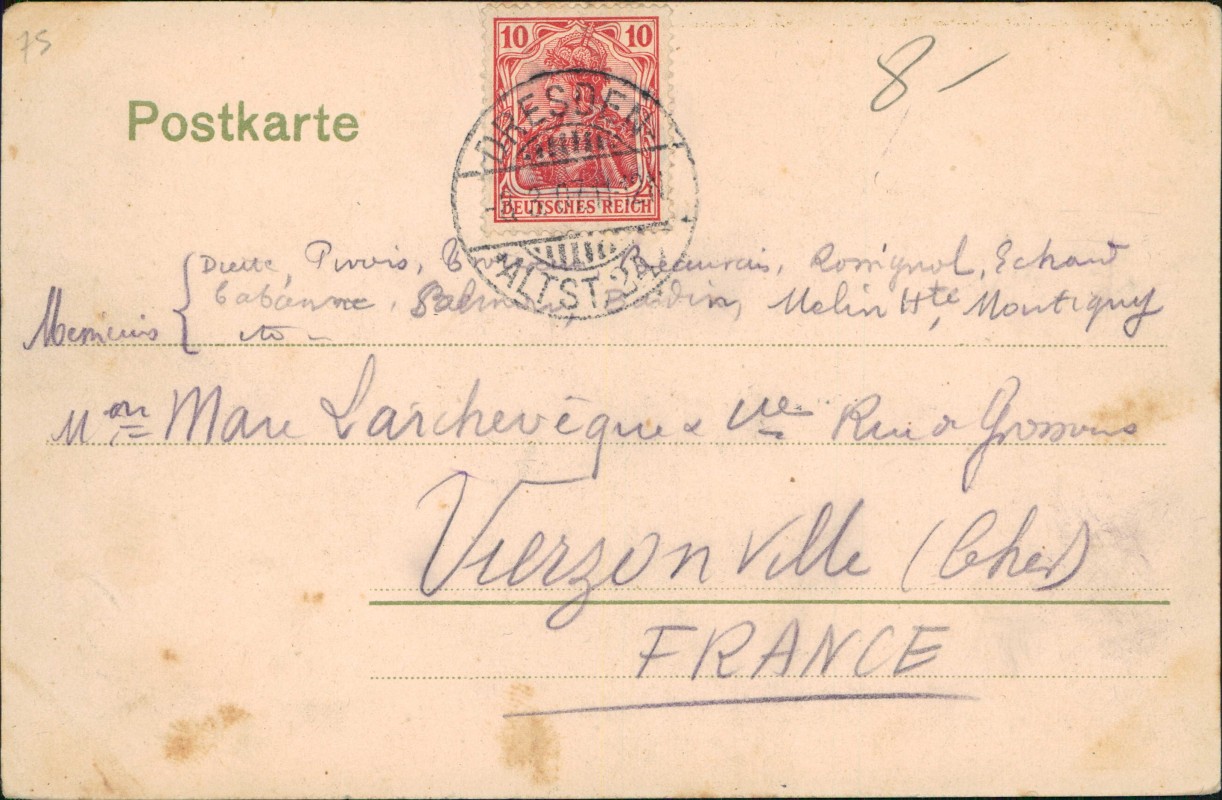 75
8-
Postkarte
10 10
DEUTSCHES REICH
DRESDEN
ALTST. 24
Pivois, Beauvais, Rossignol, Echard
Cabanne, Baudin, Melin Hte, Montigny
Messieurs
Mon Marc Larchevêque & Vve Rue de Grossous
Vierzon Ville (Cher)
FRANCE